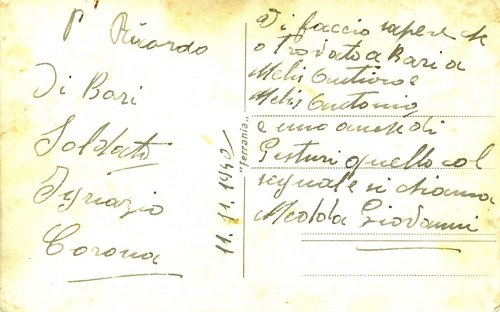 P Ricordo
Di Bari
Soldato
Ignazio
Corona
11.11.1940
"Ferrania"
Vi faccio sapere ke
o trovato a Bari a
Melis Antioco e
Melis Antonio
e uno anche di
Gesturi quello col
segnale si chiama
Medda Giovanni